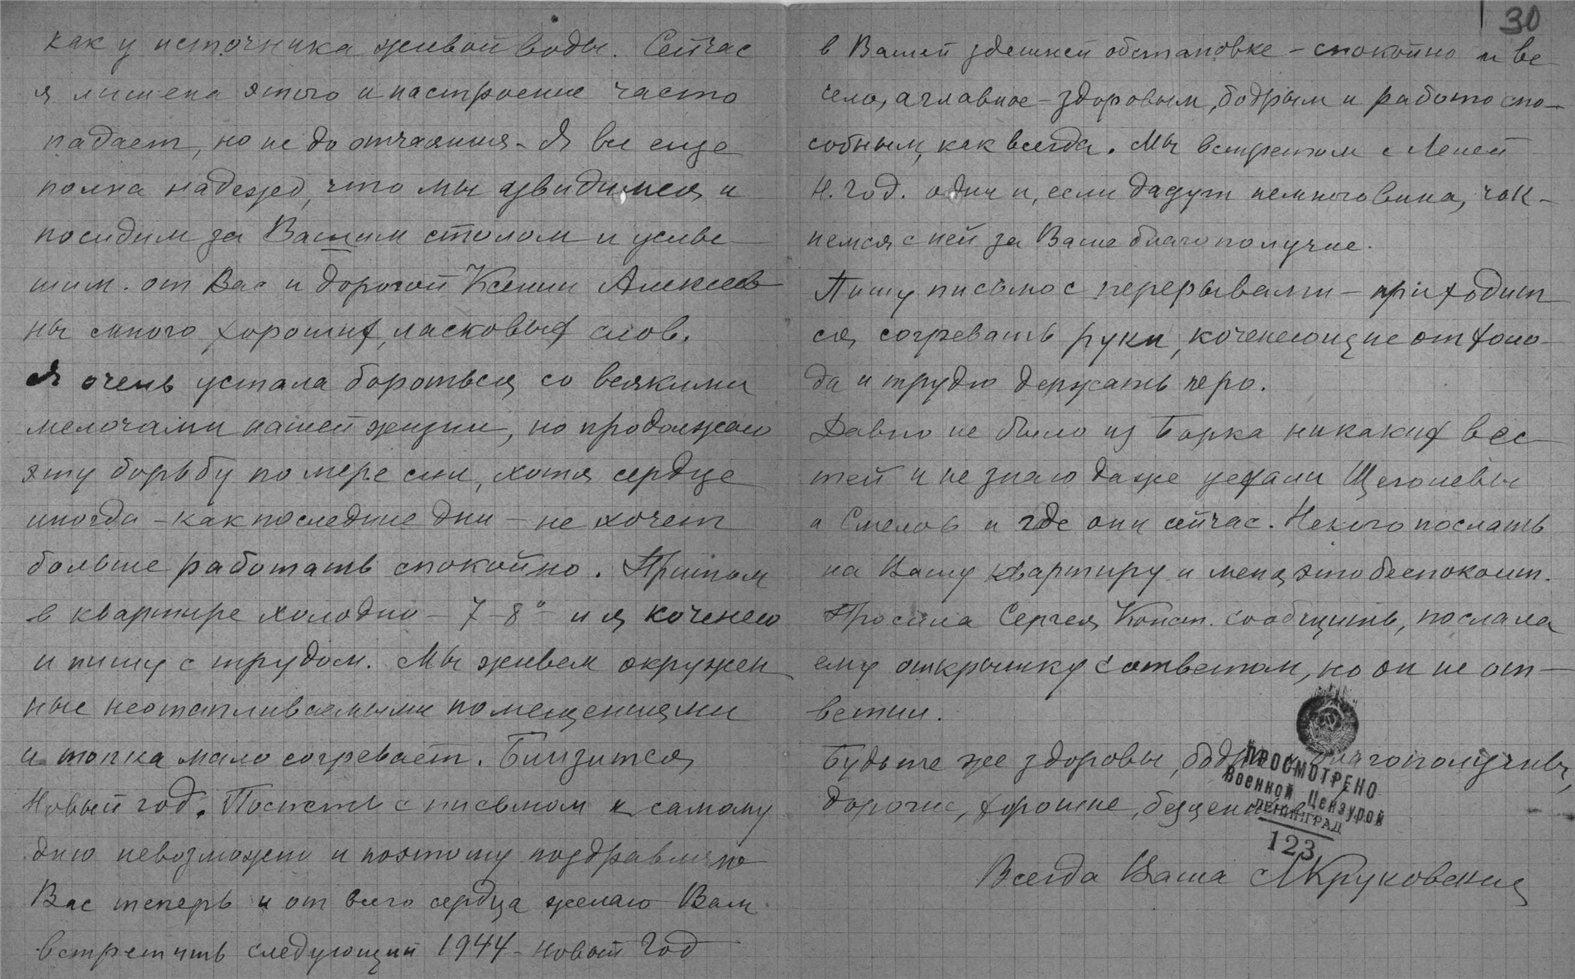 как у источника живой воды. Сейчас
я лишена этого и настроение часто
падает, но не до отчаяния. Я все еще
полна надежд, что мы увидимся и
посидим за Вашим столом и услы-
шим от Вас и дорогой Ксении Алексеев-
ны много хороших, ласковых слов.
Я очень устала бороться со всякими
мелочами нашей жизни, но продолжаю
эту борьбу по мере сил, хотя сердце
иногда - как последние дни - не хочет
больше работать спокойно. Притом
в квартире холодно - 7-8° и я коченею
и пишу с трудом. Мы живем окружен
ные неотапливаемыми помещениями
и топка мало согревает. Близится
Новый год. Поспеть с письмом к самому
дню невозможно и поэтому поздравляю
Вас теперь и от всего сердца желаю Вам
встретить следующий 1944 - новый год
30
в Вашей здешней обстановке - спокойно и ве
село, а главное - здоровым, бодрым и работоспо-
собным, как всегда. Мы встретим с Леней
Н. год одни и, если дадут немного вина, чок-
немся с ней за Ваше благополучие.
Пишу письмо с перерывами - приходит
ся согревать руки, коченеющие от холо-
да и трудно держать перо.
Давно не было из Борка никаких вес-
тей и не знаю даже уехали Щеголевы
и где они сейчас. Некого послать
на Вашу квартиру и меня это беспокоит.
Просила Сергея Конст. сообщить, послала
ему открытку с ответом, но он не от-
ветил.
Будьте же здоровы, бодры благополучны,
дорогие, хорошие, бесценные
Всегда Ваша Круковская
ПРОСМОТРЕНО
Военной Цензурой
ЛЕНИНГРАД
123